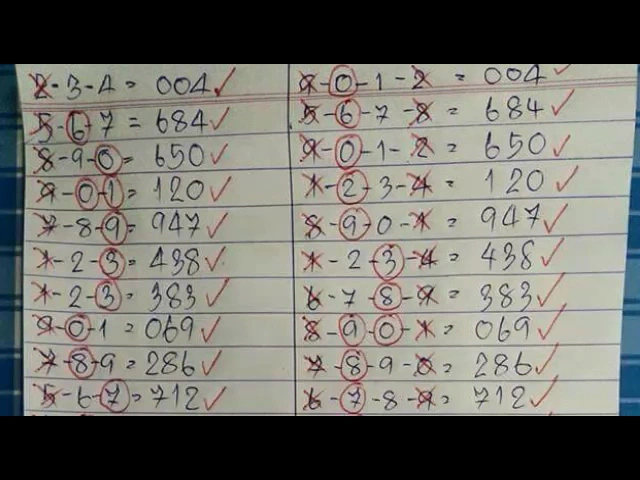 2-3-4 = 004 ✓ 9-0-1-2 = 004 ✓
5-6-7 = 684 ✓ 5-6-7-8 = 684 ✓
8-9-0 = 650 ✓ 9-0-1-2 = 650 ✓
9-0-1 = 120 ✓ 1-2-3-4 = 120 ✓
7-8-9 = 947 ✓ 8-9-0-1 = 947 ✓
1-2-3 = 438 ✓ 1-2-3-4 = 438 ✓
1-2-3 = 383 ✓ 6-7-8-9 = 383 ✓
9-0-1 = 069 ✓ 8-9-0-1 = 069 ✓
7-8-9 = 286 ✓ 7-8-9-0 = 286 ✓
5-6-7 = 712 ✓ 6-7-8-9 = 712 ✓